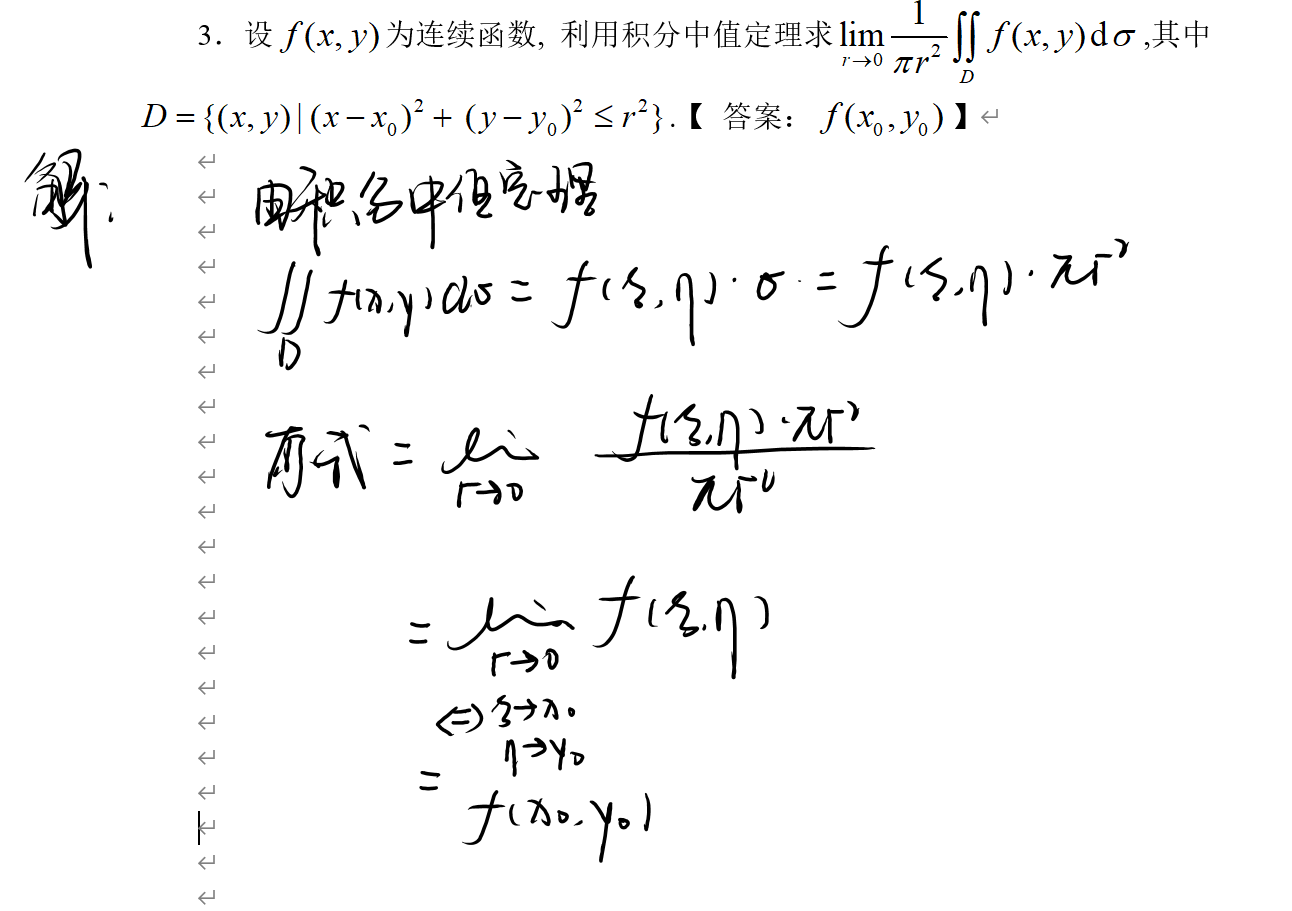 3. 设 f(x, y) 为连续函数, 利用积分中值定理求 lim_{r→0} \frac{1}{πr^2} ∬_D f(x, y)dσ ,其中
D = {(x, y) | (x − x_0)^2 + (y − y_0)^2 ≤ r^2}.【 答案: f(x_0, y_0) 】
解: 由积分中值定理
∬_D f(x,y)dσ = f(ξ,η)·σ = f(ξ,η)·πr^2
原式 = lim_{r→0} \frac{f(ξ,η)·πr^2}{πr^2}
= lim_{r→0} f(ξ,η)
⇔ ξ→x_0
η→y_0
= f(x_0,y_0)